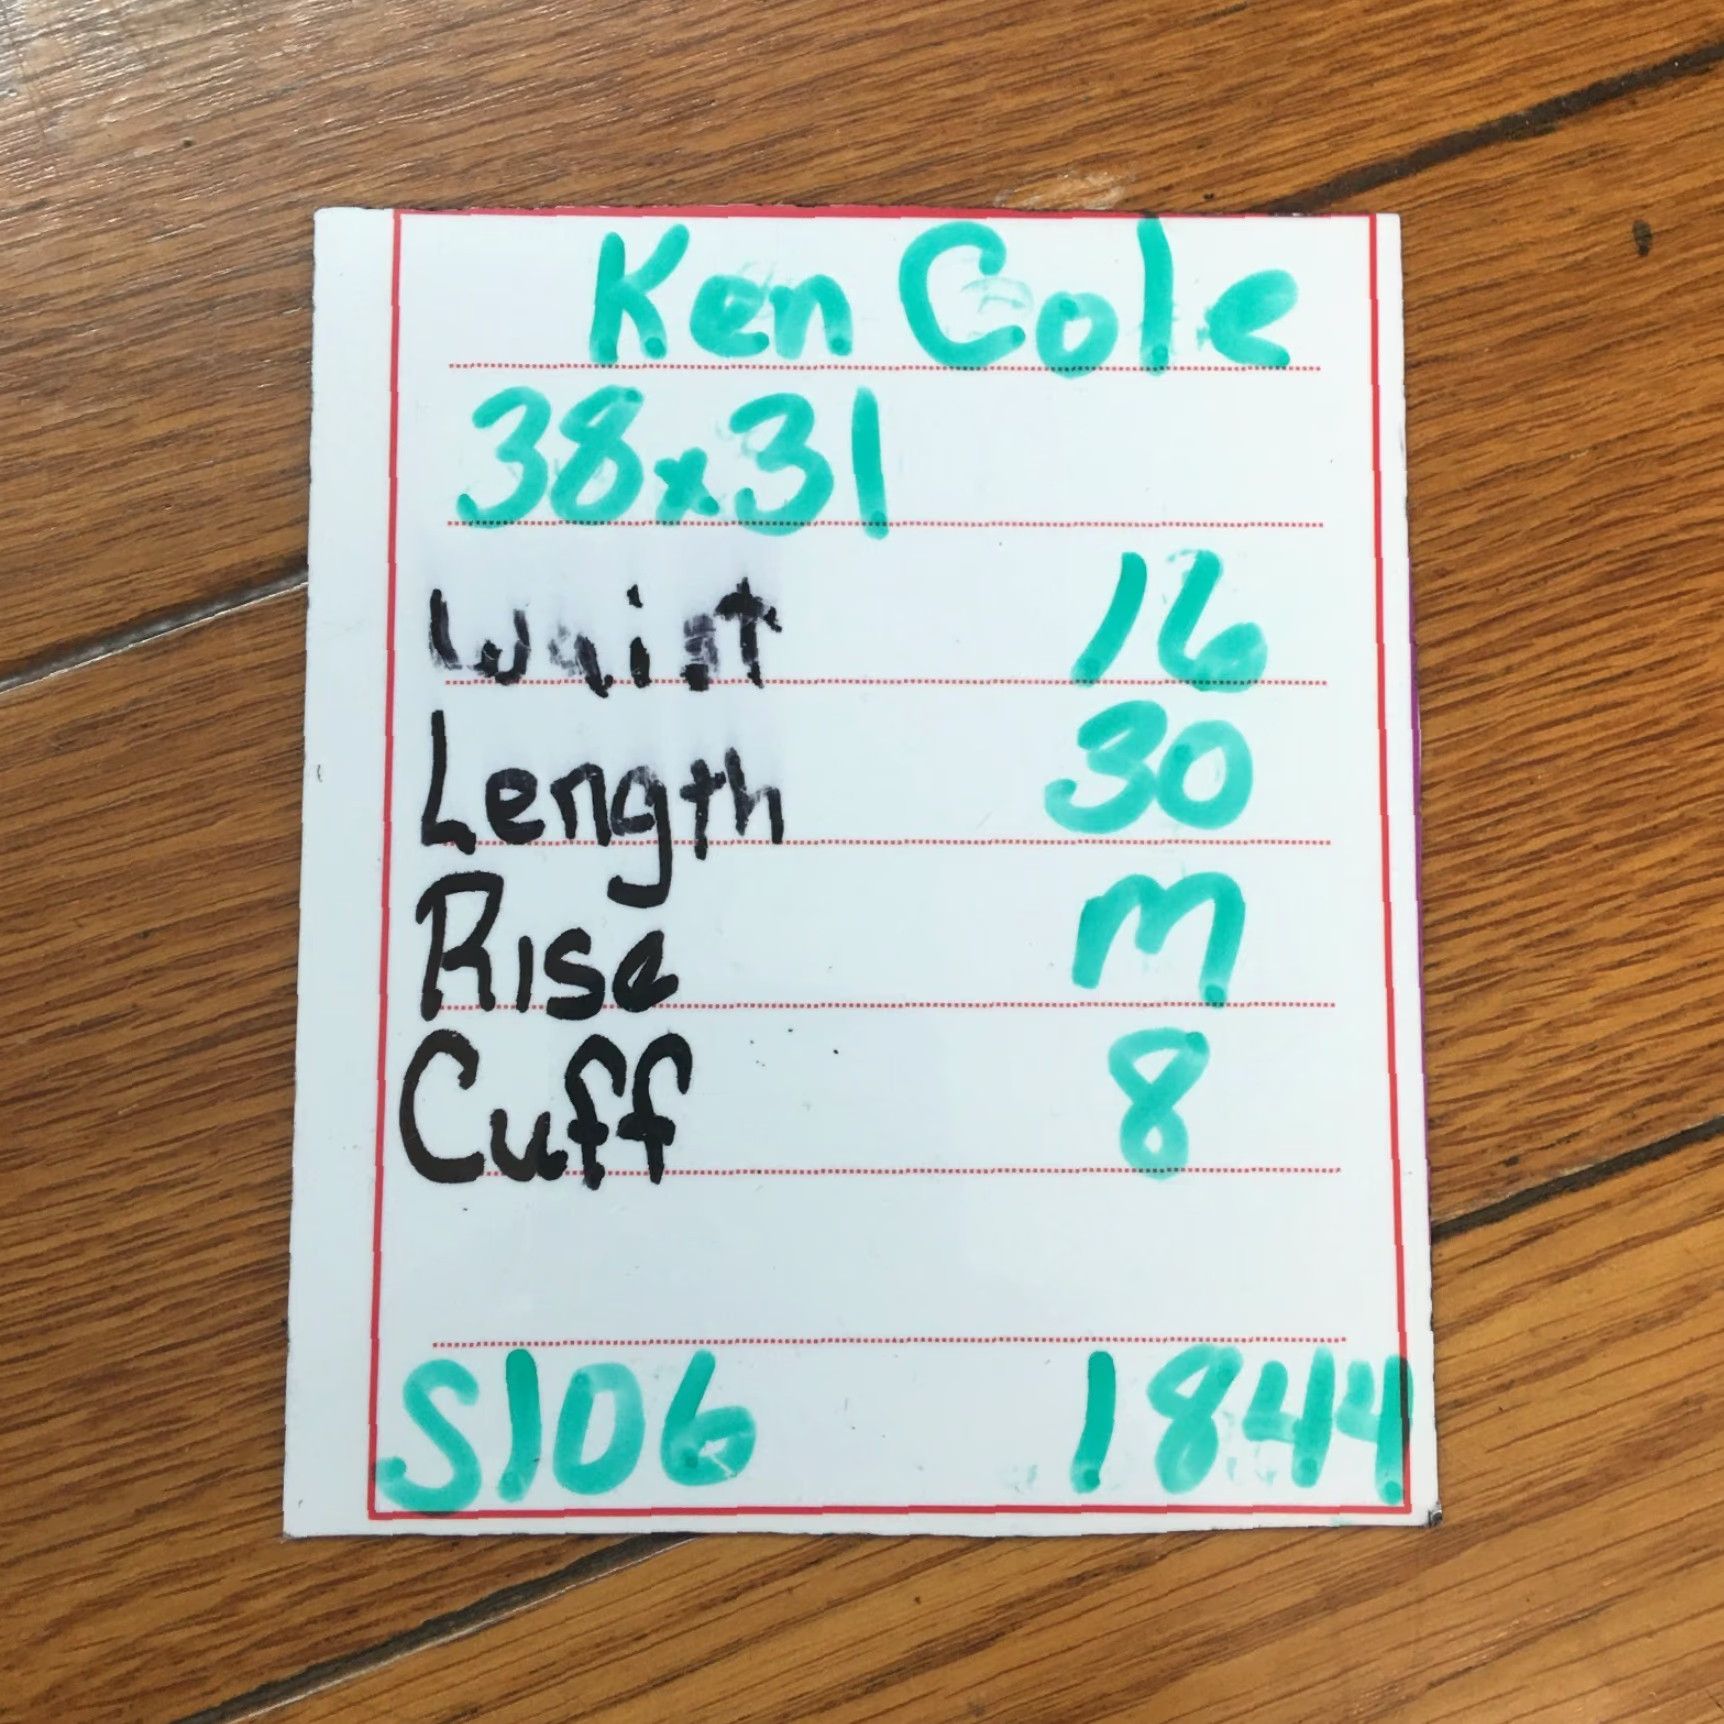 Ken Cole
38x31
Waist 16
Length 30
Rise M
Cuff 8
S106 1844